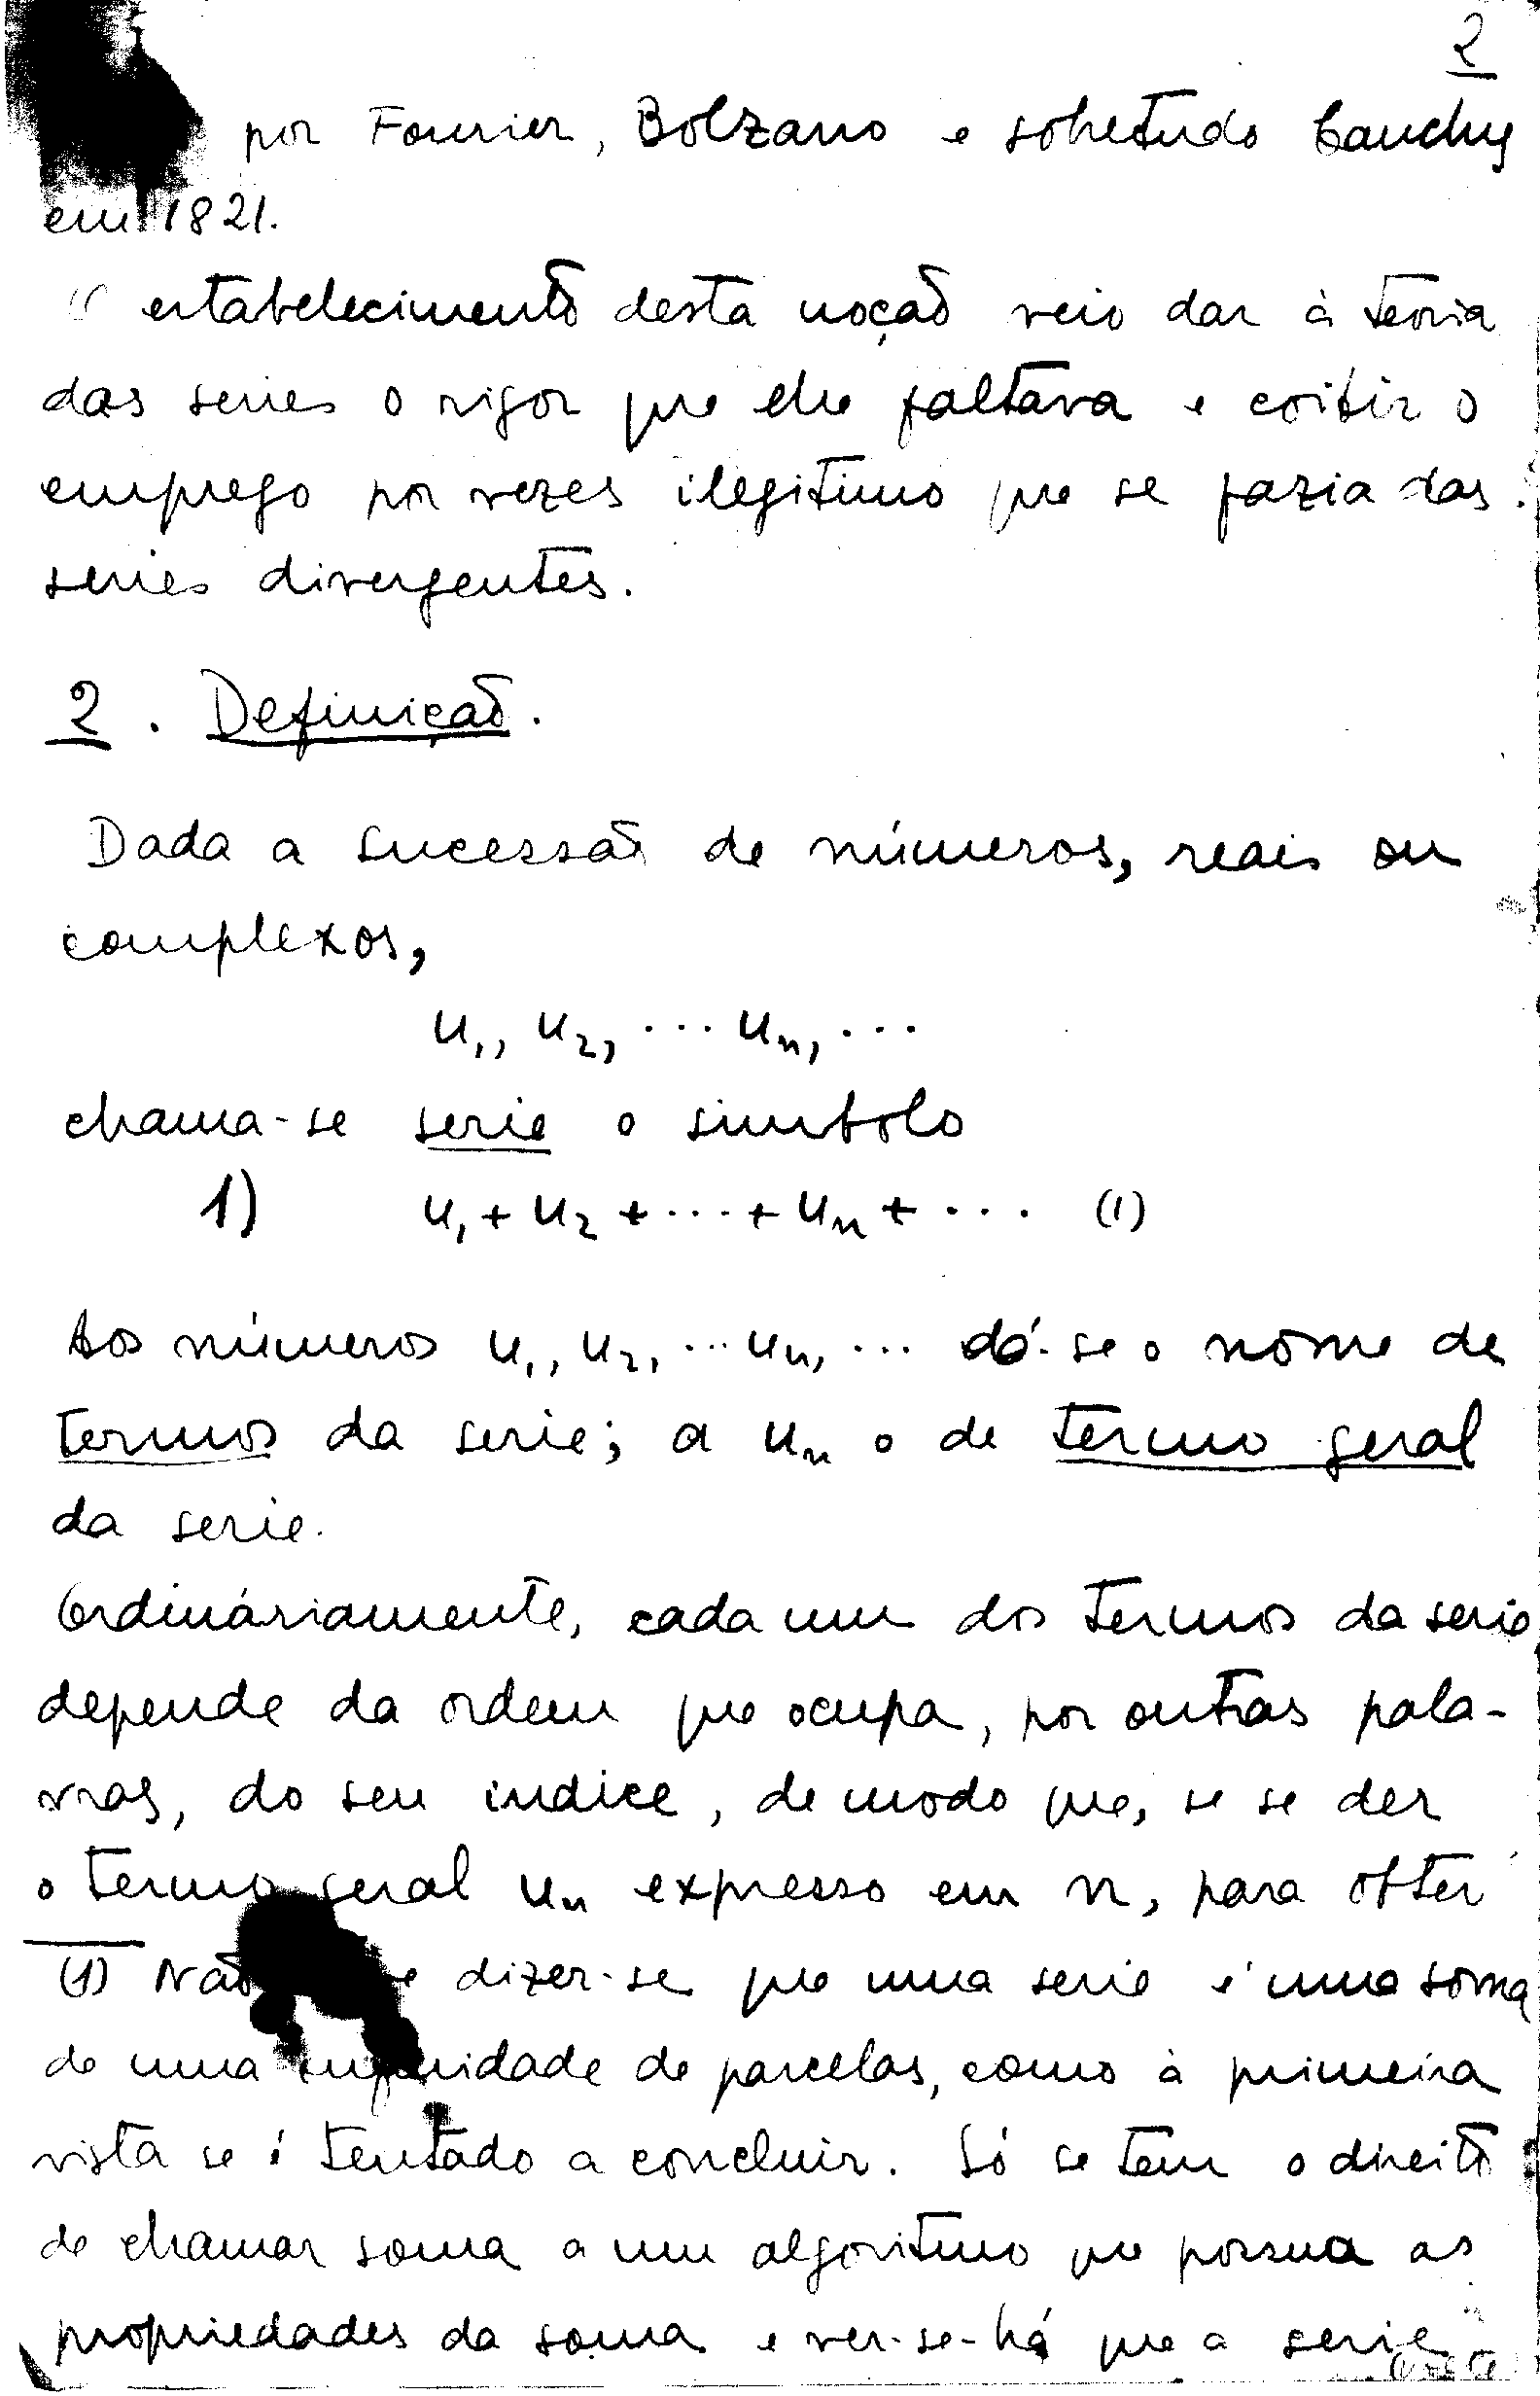 2
por Fourier, Bolzano e sobretudo Cauchy
em 1821.
O estabelecimento desta noção veio dar à teoria
das series o rigor que lhe faltava e coibir o
emprego por vezes ilegitimo que se fazia das
series divergentes.
2. Definição.
Dada a sucessão de números, reais ou
complexos,
u₁, u₂, ... uₙ, ...
chama-se serie o simbolo
1) u₁ + u₂ + ... + uₙ + ... (1)
Aos números u₁, u₂, ... uₙ, ... dá-se o nome de
termos da serie; a uₙ o de termo geral
da serie.
Ordináriamente, cada um dos termos da serie
depende da ordem que ocupa, por outras pala-
vras, do seu indice, de modo que, se se der
o termo geral uₙ expresso em n, para obter
(1) Não dizer-se que uma serie é uma soma
de uma infinidade de parcelas, como à primeira
vista se é tentado a concluir. Só se tem o direito
de chamar soma a um algoritmo que possua as
propriedades da soma e ver-se-há que a serie